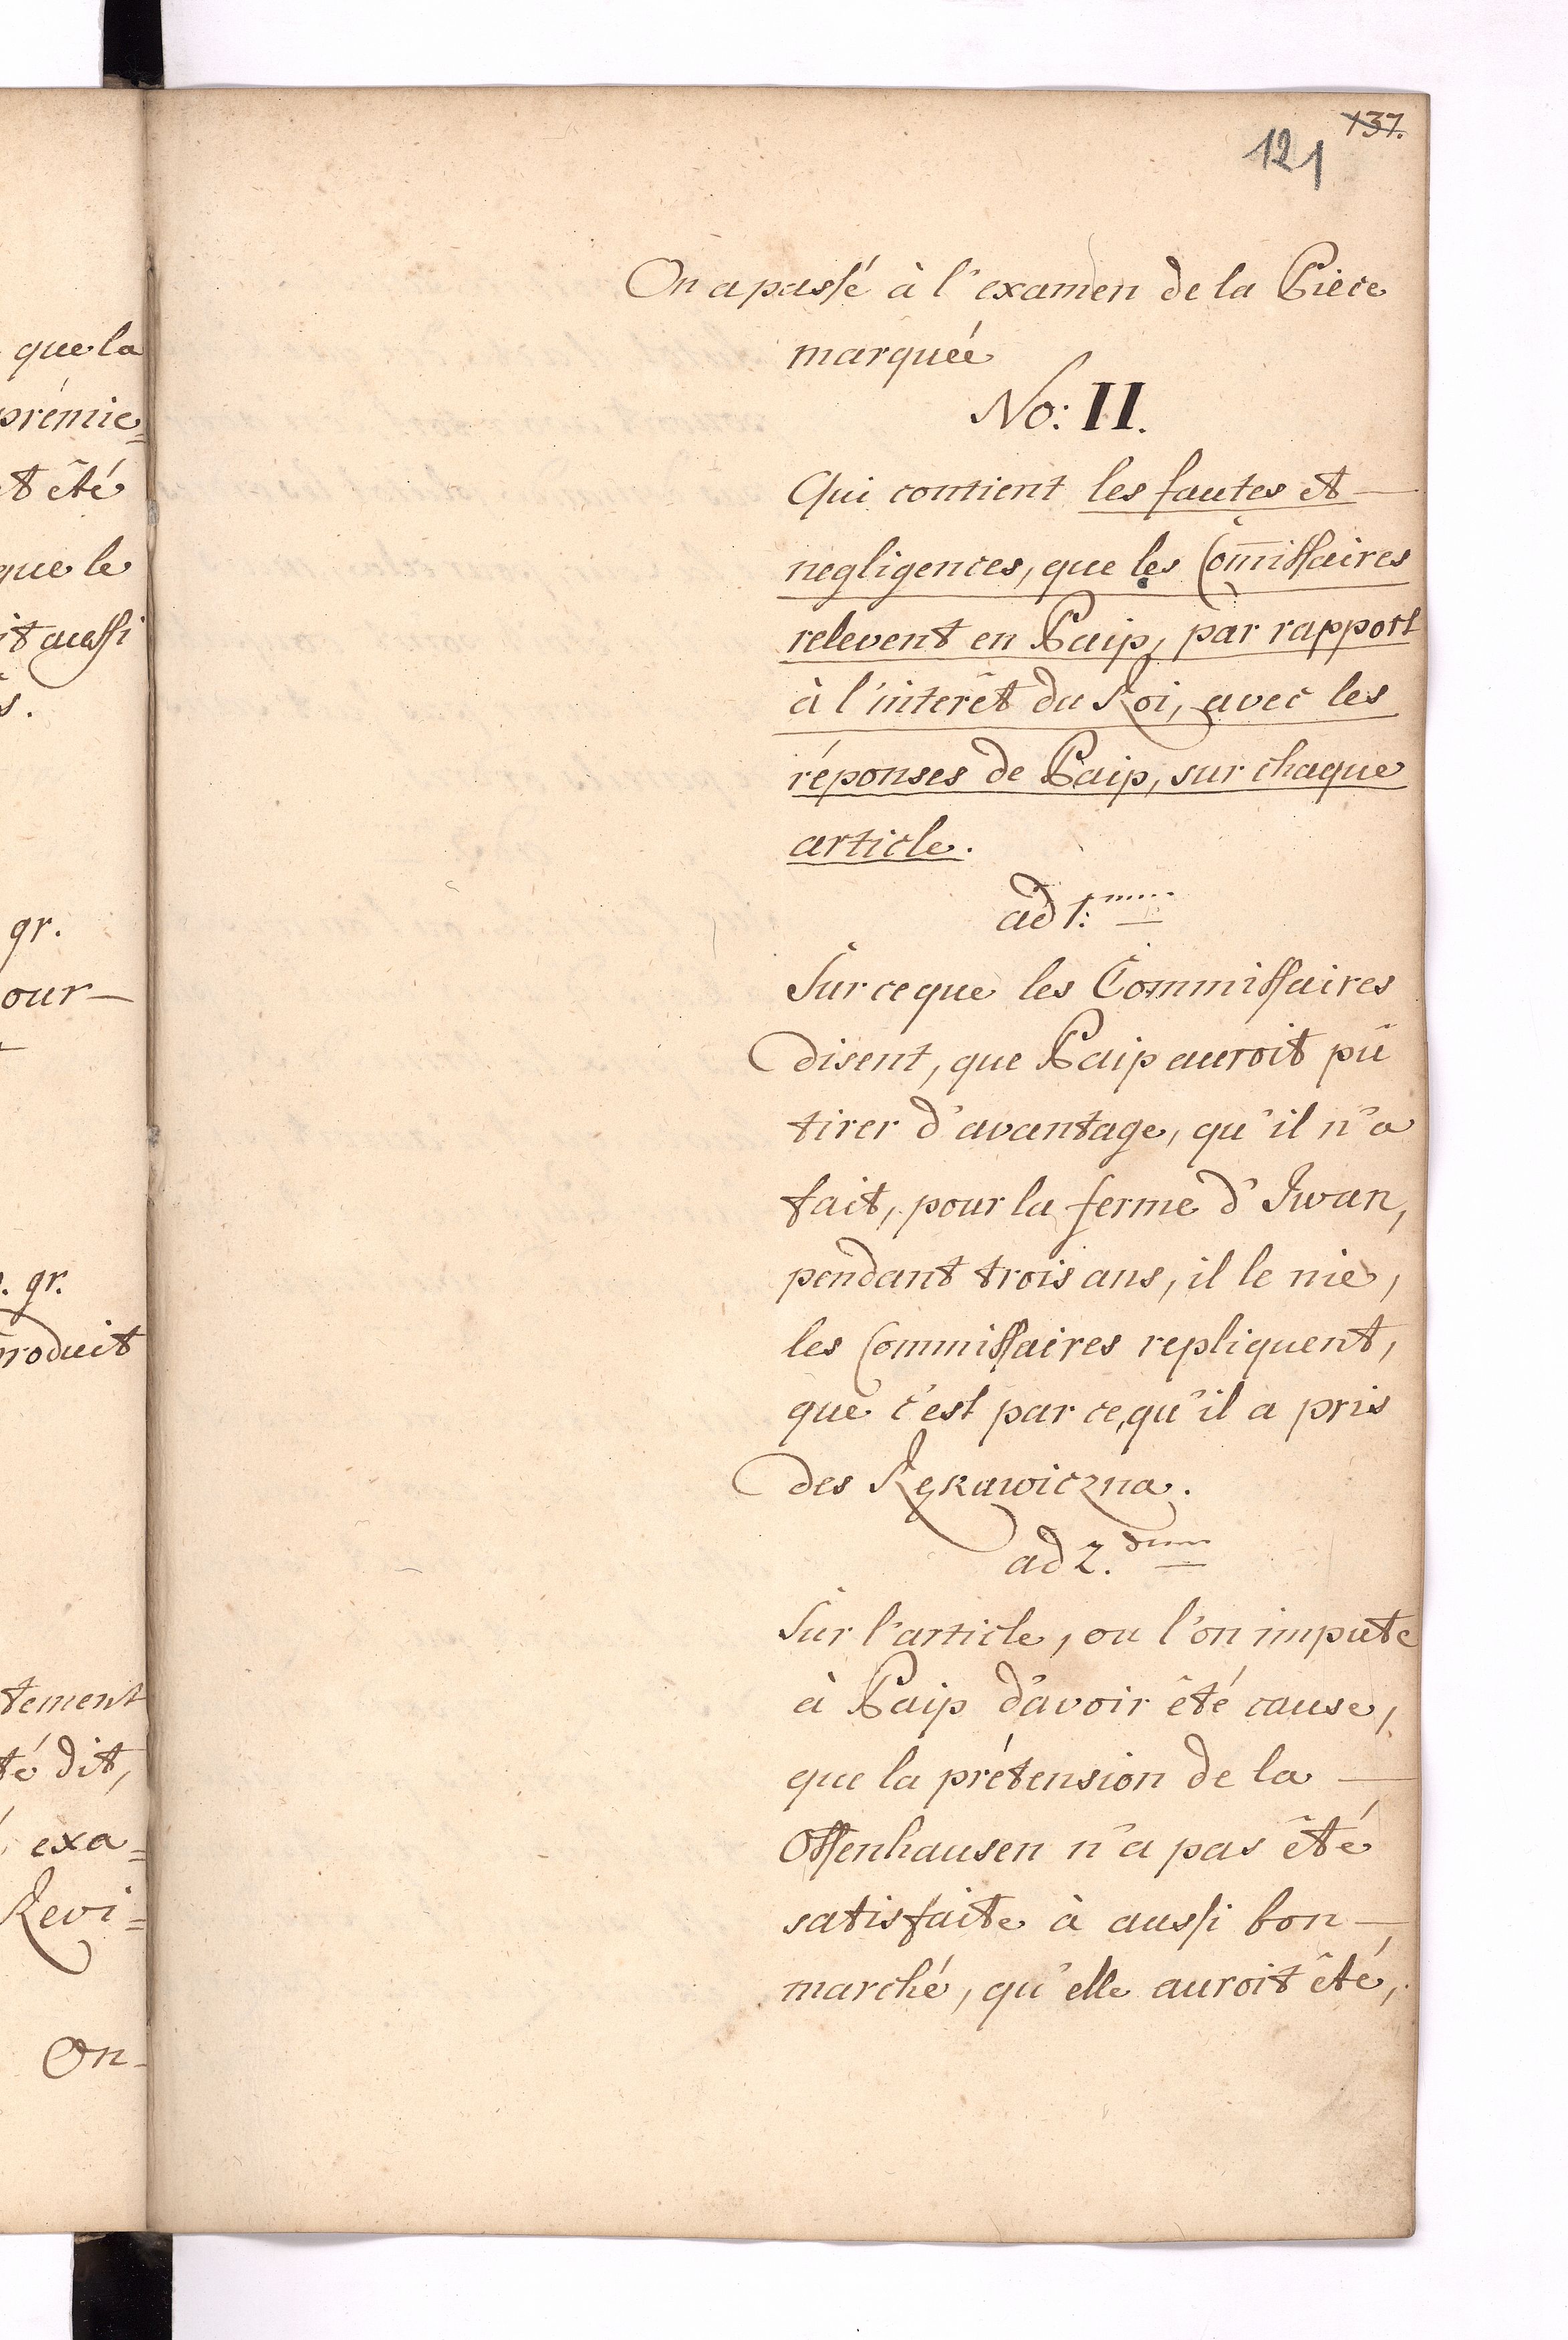 que la
prémie=
t êté
que le
it aussi
s.
gr.
our—
gr.
produit
tement
té dit,
exa=
Revi=
On-
137.
121
On a passé à l'examen de la Pièce
marquée
No: II.
Qui contient les fautes et —
negligences, que les Com̅issaires
relevent en Paip, par rapport
à l'interêt du Roi, avec les
réponses de Paip, sur chaque
article.
ad 1:mum
Sur ce que les Commissaires
disent, que Paip auroit pû
tirer d'avantage, qu'il n'a
fait, pour la ferme d'Iwan,
pendant trois ans, il le nie,
les Commissaires repliquent,
que c'est par ce, qu'il a pris
des Rękawiczna.
ad 2.dum
Sur l'article, ou l'on impute
à Paip d'avoir êté cause,
que la prétension de la —
Ossenhausen n'a pas êté
satisfaite à aussi bon —
marché, qu'elle auroit êté,